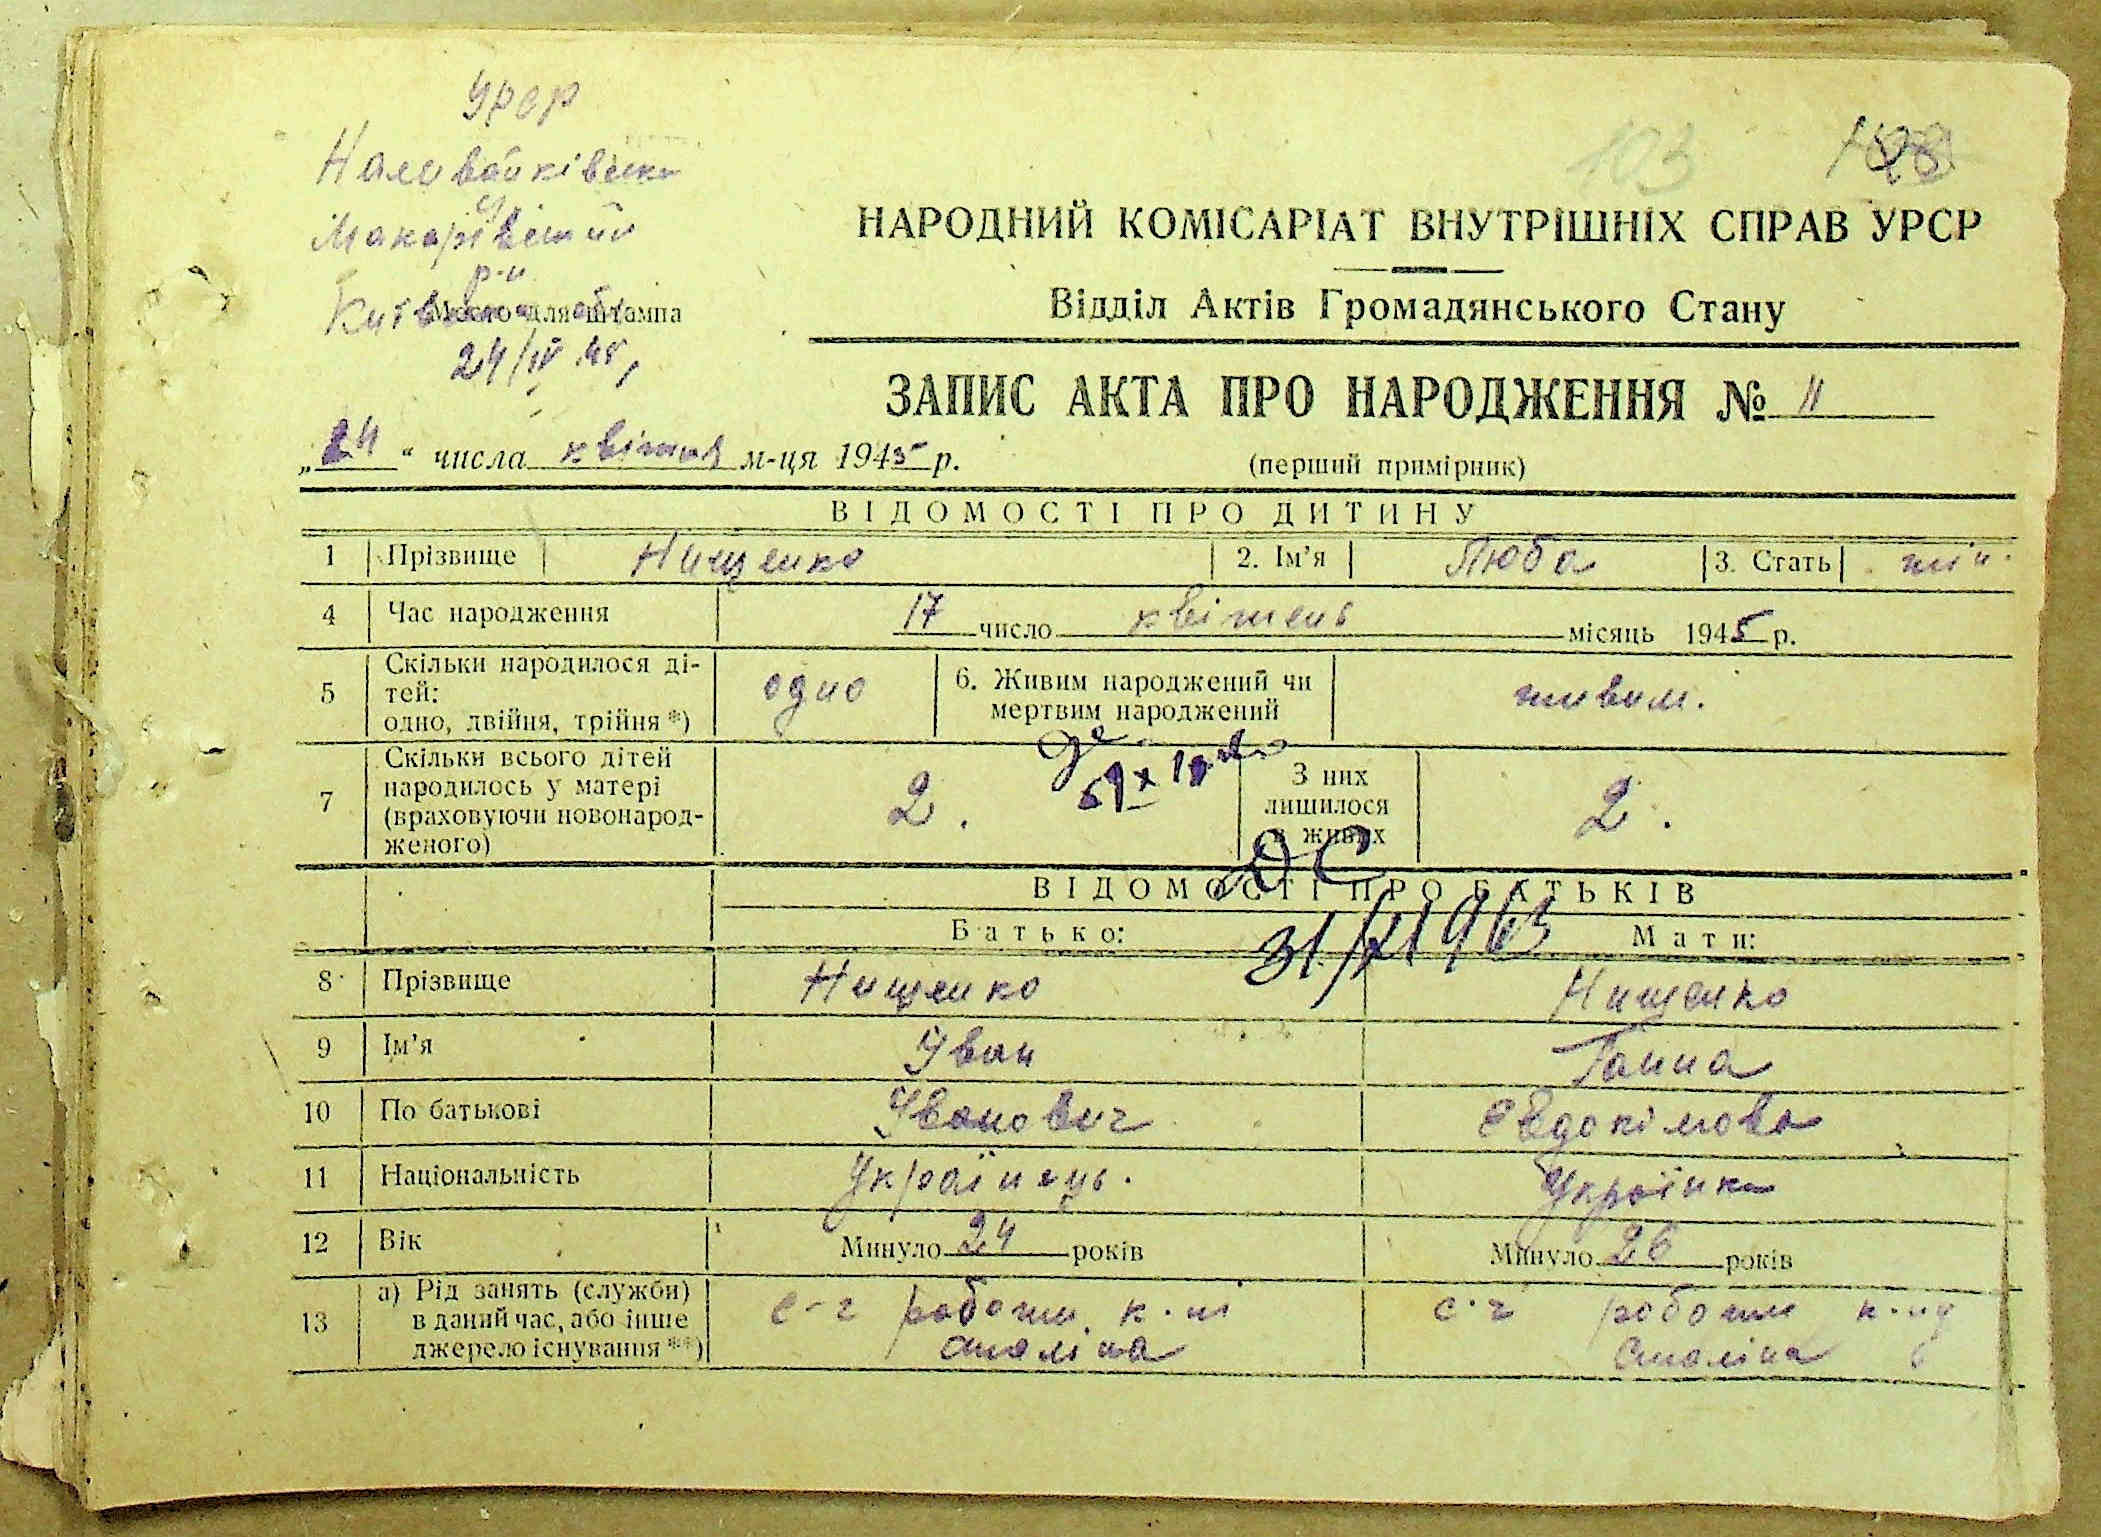 УРСР
Наливайківська
Макарівський
р-н
Київська обл
Место для штампа
24/IV 45
103
НАРОДНИЙ КОМІСАРІАТ ВНУТРІШНІХ СПРАВ УРСР
Відділ Актів Громадянського Стану
ЗАПИС АКТА ПРО НАРОДЖЕННЯ № 11
„24“ числа квітня м-ця 1945 р.
(перший примірник)
ВІДОМОСТІ ПРО ДИТИНУ
1 Прізвище Нищенко 2. Ім’я Люба 3. Стать жін.
4 Час народження 17 число квітень місяць 1945 р.
5 Скільки народилося ді-
тей:
одно, двійня, трійня *) одно 6. Живим народжений чи
мертвим народжений живим.
7 Скільки всього дітей
народилось у матері
(враховуючи новонарод-
женого) 2. З них
лишилося
в живих 2.
ДС
31/XI 1963
ВІДОМОСТІ ПРО БАТЬКІВ
Батько: Мати:
8 Прізвище Нищенко Нищенко
9 Ім’я Іван Ганна
10 По батькові Іванович Євдокімова
11 Національність Українець. Українка
12 Вік Минуло 24 років Минуло 26 років
13 а) Рід занять (служби)
в даний час, або інше
джерело існування **)
с-г роботи к-пі
Сталіна
с-г роботи к-пу
Сталіна